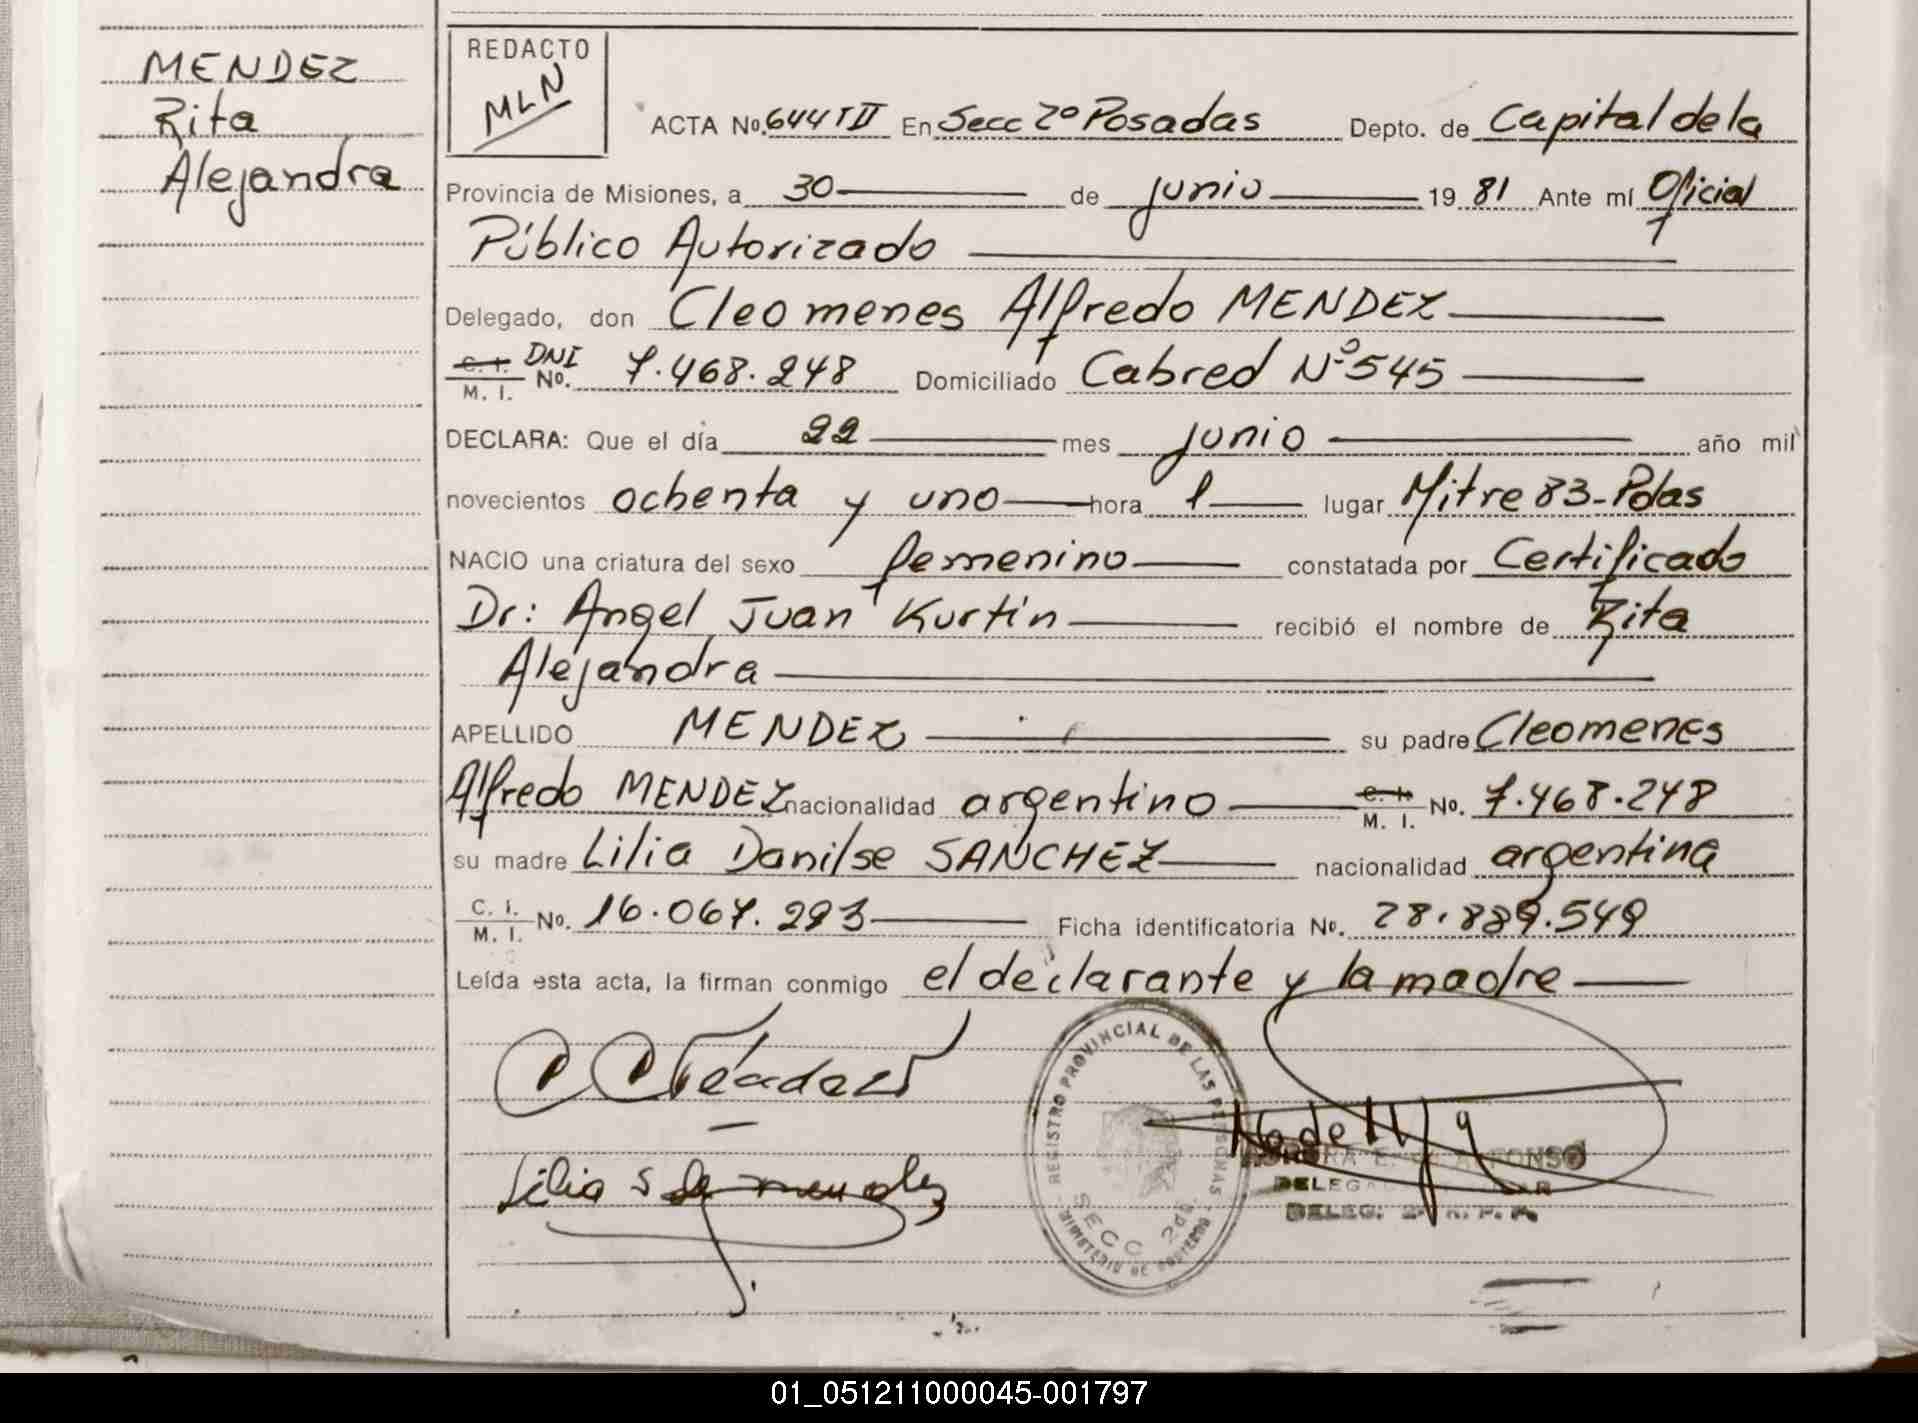 MENDEZ
Rita
Alejandra
REDACTO
MLN
ACTA No. 644 T II En Secc 2º Posadas Depto. de Capital de la
Provincia de Misiones, a 30 de junio 19 81 Ante mí Oficial
Público Autorizado
Delegado, don Cleomenes Alfredo MENDEZ
C. I. DNI
M. I. No. 7.468.248 Domiciliado Cabred Nº 545
DECLARA: Que el día 22 mes junio año mil
novecientos ochenta y uno hora 1 lugar Mitre 83-Pdas
NACIO una criatura del sexo femenino constatada por Certificado
Dr: Angel Juan Kurtin recibió el nombre de Rita
Alejandra
APELLIDO MENDEZ su padre Cleomenes
Alfredo MENDEZ nacionalidad argentino C. I. M. I. No. 7.468.248
su madre Lilia Danilse SANCHEZ nacionalidad argentina
C. I. M. I. No. 16.067.293 Ficha identificatoria No. 28.889.549
Leída esta acta, la firman conmigo el declarante y la madre
REGISTRO PROVINCIAL DE LAS PERSONAS
MINISTERIO DE GOBIERNO
SECC 2da.
Lilia S de mendez
DELEG. 2ª R. P. P.
01_051211000045-001797